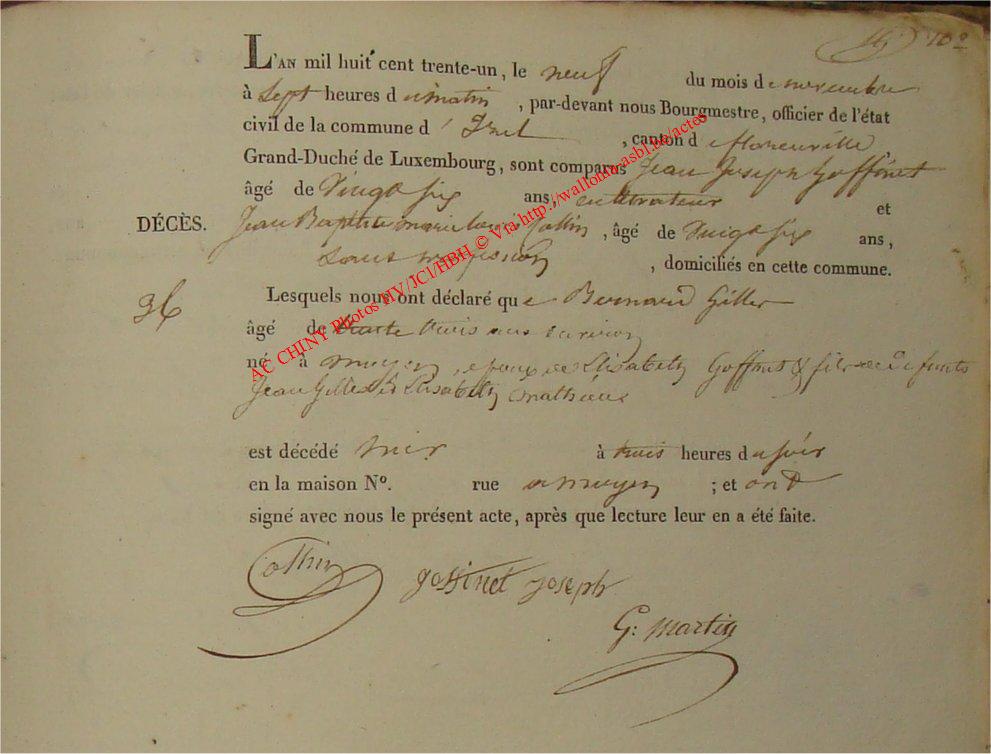 10e
L'AN mil huit cent trente-un, le neuf du mois de novembre
à Sept heures du matin, par-devant nous Bourgmestre, officier de l'état
civil de la commune d'Izel, canton de florenville,
Grand-Duché de Luxembourg, sont comparus Jean Joseph Goffinet
âgé de Vingt Six ans, cultivateur et
DÉCÈS. Jean Baptiste marie Louis Collin, âgé de Vingt Six ans,
Sans profession, domiciliés en cette commune.
36 Lesquels nous ont déclaré que Bernard Gilles
âgé de trente trois ans environ
né à moyen, epoux de Elisabeth Goffinet & fils de defunts
Jean Gilles et Elisabeth mathieux
est décédé hier à trois heures du soir
en la maison No. rue a moyen ; et ont
signé avec nous le présent acte, après que lecture leur en a été faite.
Collin
goffinet joseph
G: Martin
AC CHINY Photos MV/JCl/HBH © Via http://wallonia-asbl.be/actes